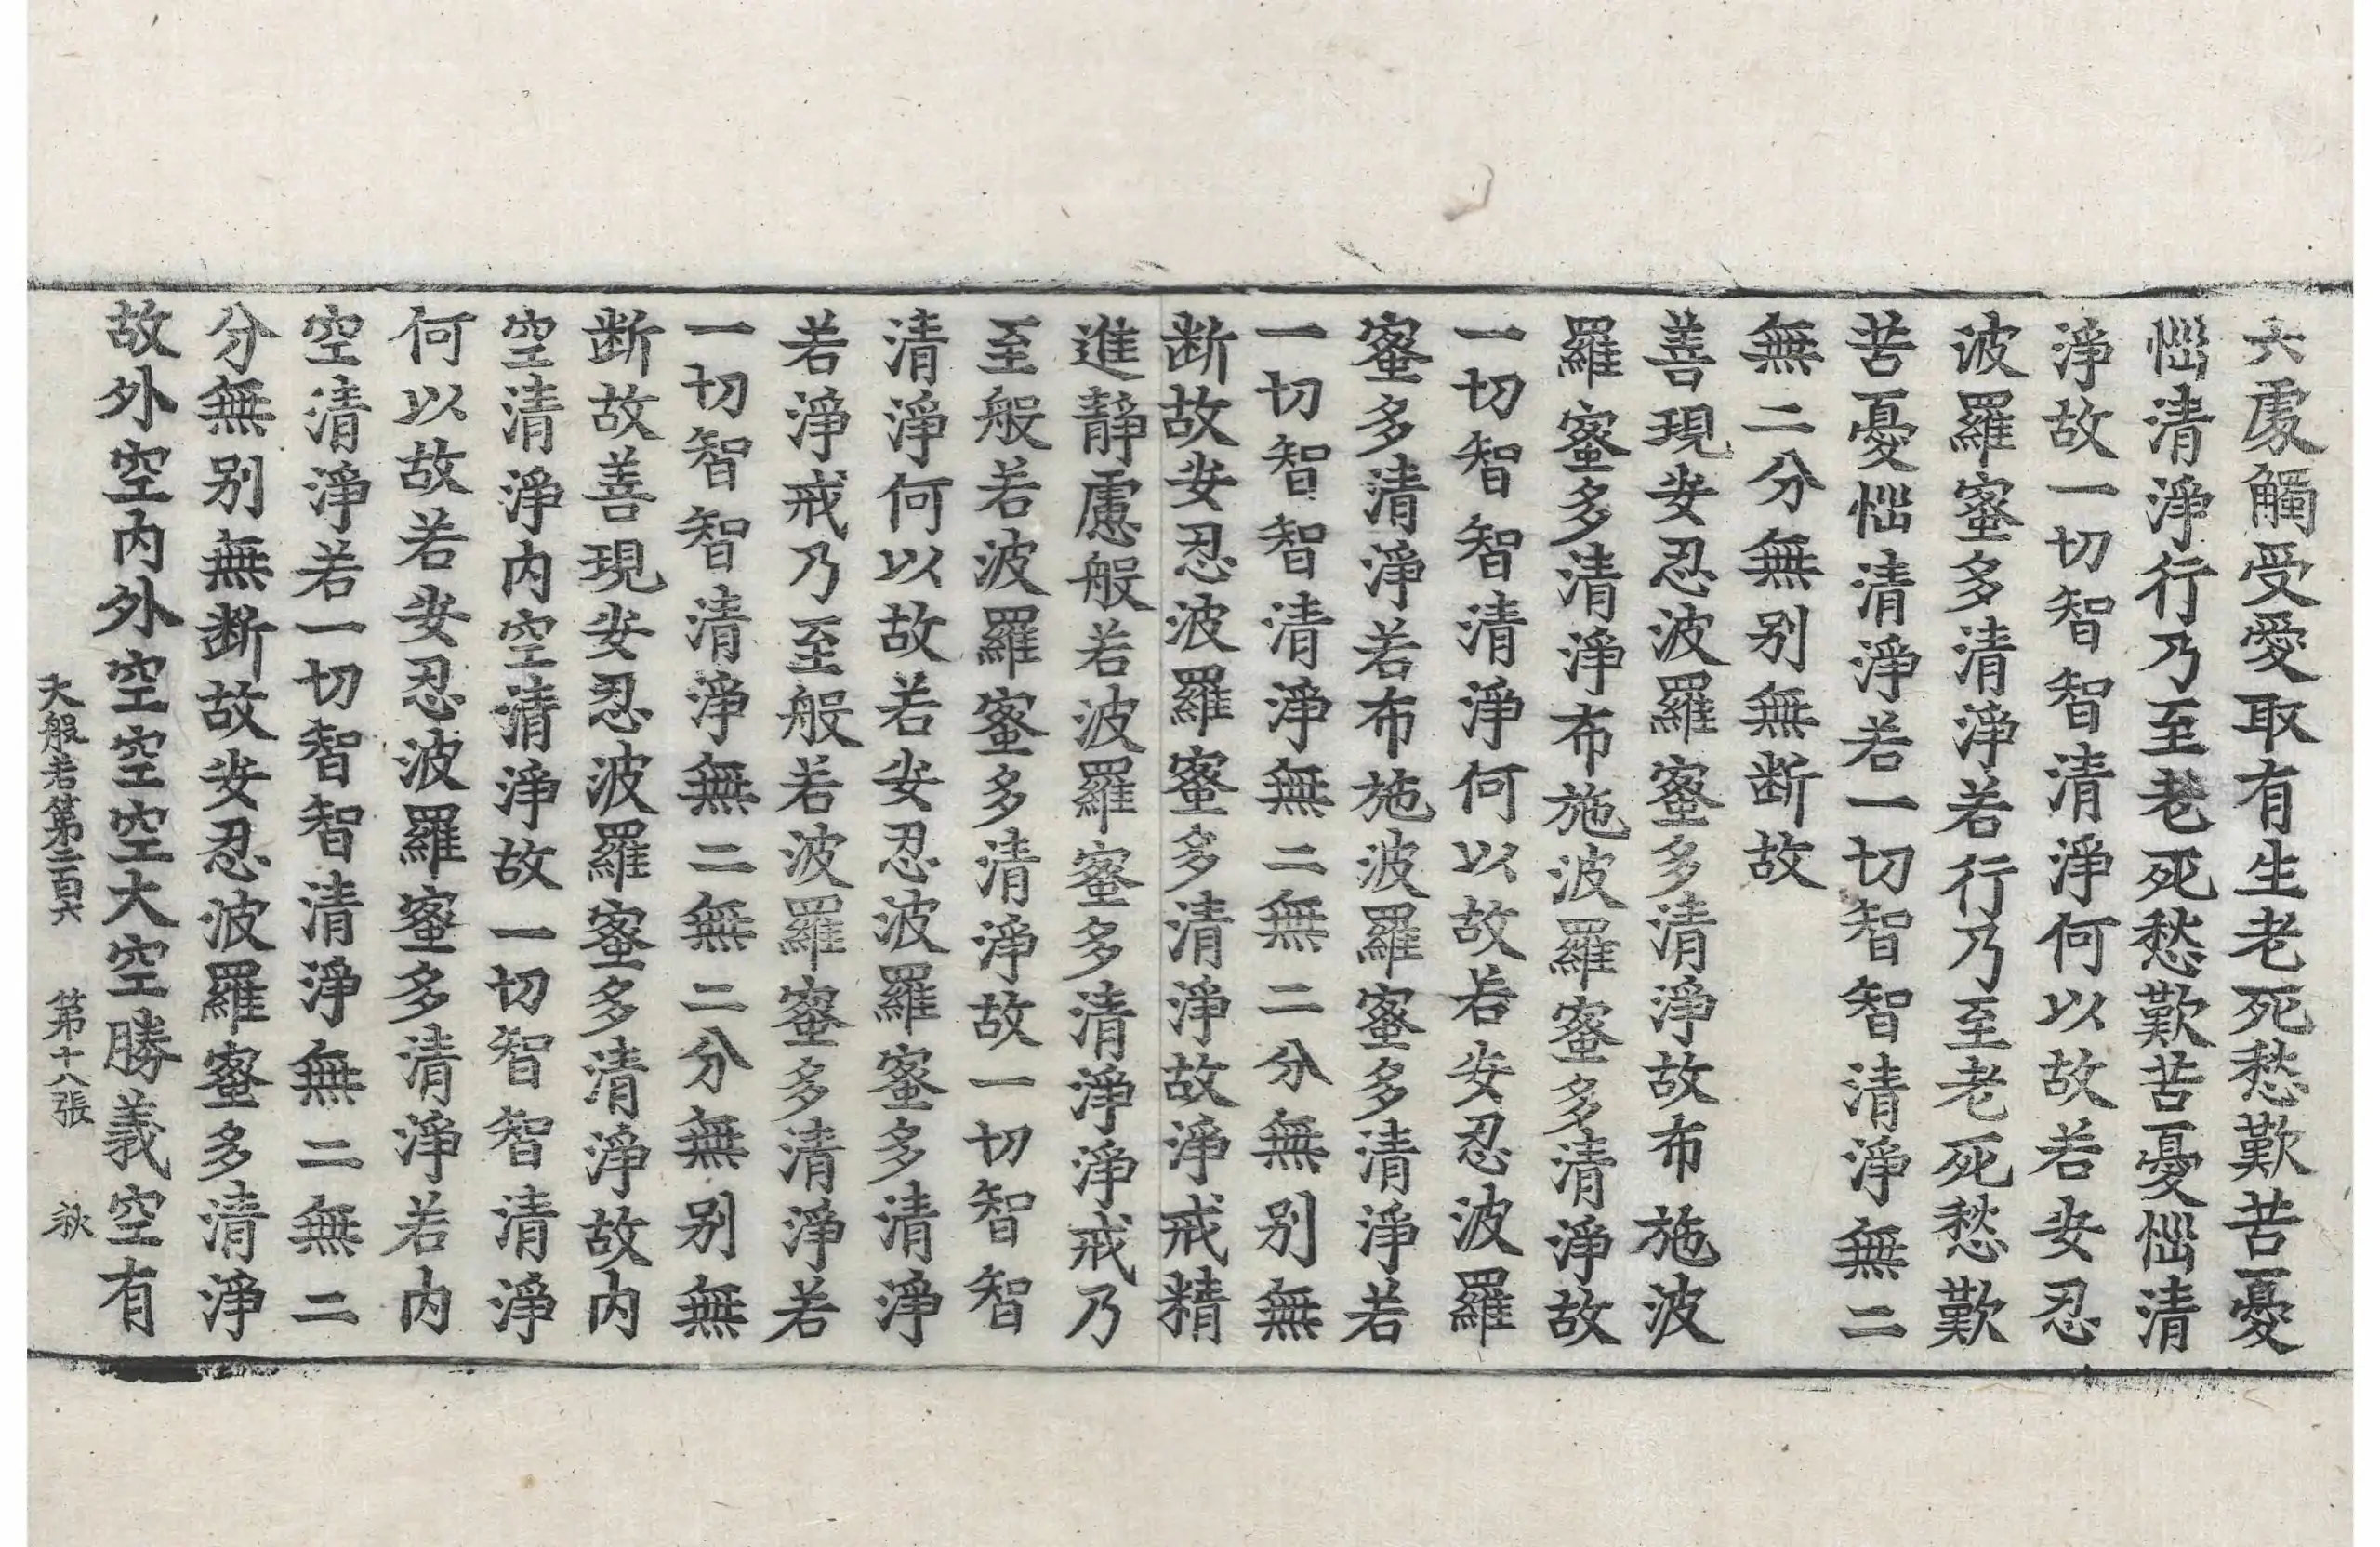 六處觸受愛取有生老死愁歎苦憂
惱清淨行乃至老死愁歎苦憂惱清
淨故一切智智清淨何以故若安忍
波羅蜜多清淨若行乃至老死愁歎
苦憂惱清淨若一切智智清淨無二
無二分無别無断故
善現安忍波羅蜜多清淨故布施波
羅蜜多清淨布施波羅蜜多清淨故
一切智智清淨何以故若安忍波羅
蜜多清淨若布施波羅蜜多清淨若
一切智智清淨無二無二分無别無
断故安忍波羅蜜多清淨故淨戒精
進靜慮般若波羅蜜多清淨淨戒乃
至般若波羅蜜多清淨故一切智智
清淨何以故若安忍波羅蜜多清淨
若淨戒乃至般若波羅蜜多清淨若
一切智智清淨無二無二分無别無
断故善現安忍波羅蜜多清淨故内
空清淨内空清淨故一切智智清淨
何以故若安忍波羅蜜多清淨若内
空清淨若一切智智清淨無二無二
分無别無断故安忍波羅蜜多清淨
故外空内外空空空大空勝義空有
大般若第二百六 第十八張 秋